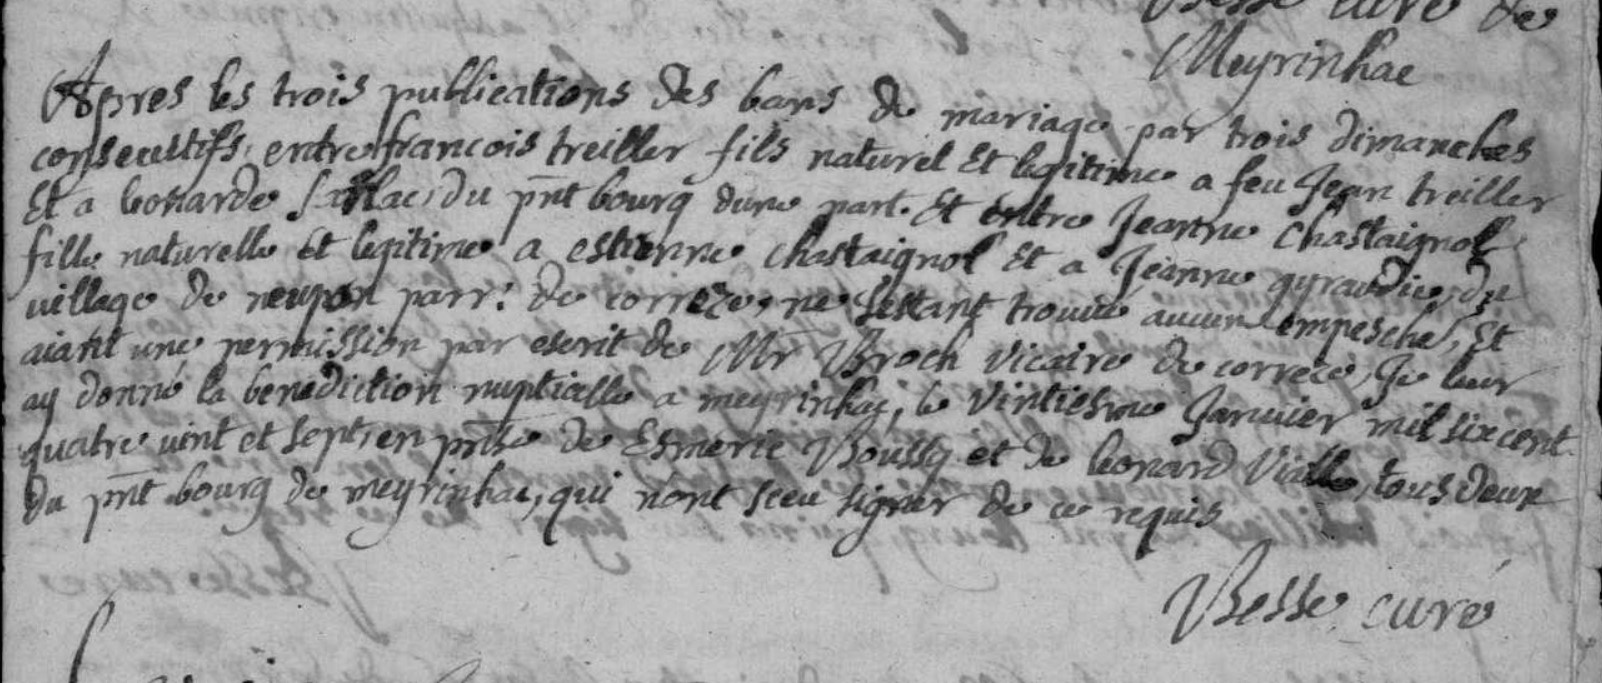 Besse curé de
Meyrinhac
Apres les trois publications des bans de mariage par trois dimanches
consecutifs, entre francois treiller fils naturel Et legitime a feu Jean treiller
Et a leonarde du pnt bourg dune part. Et entre Jeanne Chastaignol
fille naturelle et legitime a estienne Chastaignol Et a Jeanne gyraudie, du
village de neupon parr: de correze, ne sestant trouvé aucun empesche, Et
aiant une permission par escrit de Mr Broch vicaire de correze, Je leur
ay donné la benediction nuptialle a meyrinhac, le vintiesme Janvier mil six cent
quatre vint et sept, en pnce de Esmerie Boussy et de leonard Vialle, tous deux
du pnt bourg de meyrinhac, qui n'ont sceu signer de ce requis
Besse curé